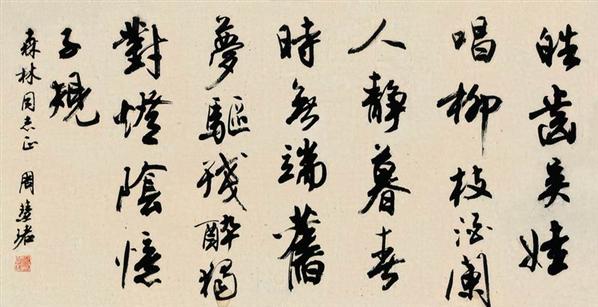 皓齒吳娃
唱柳枝酒闌
人靜暮春
時無端舊
夢驅殘醉獨
對燈陰憶
子規
森林同志正 周慧珺